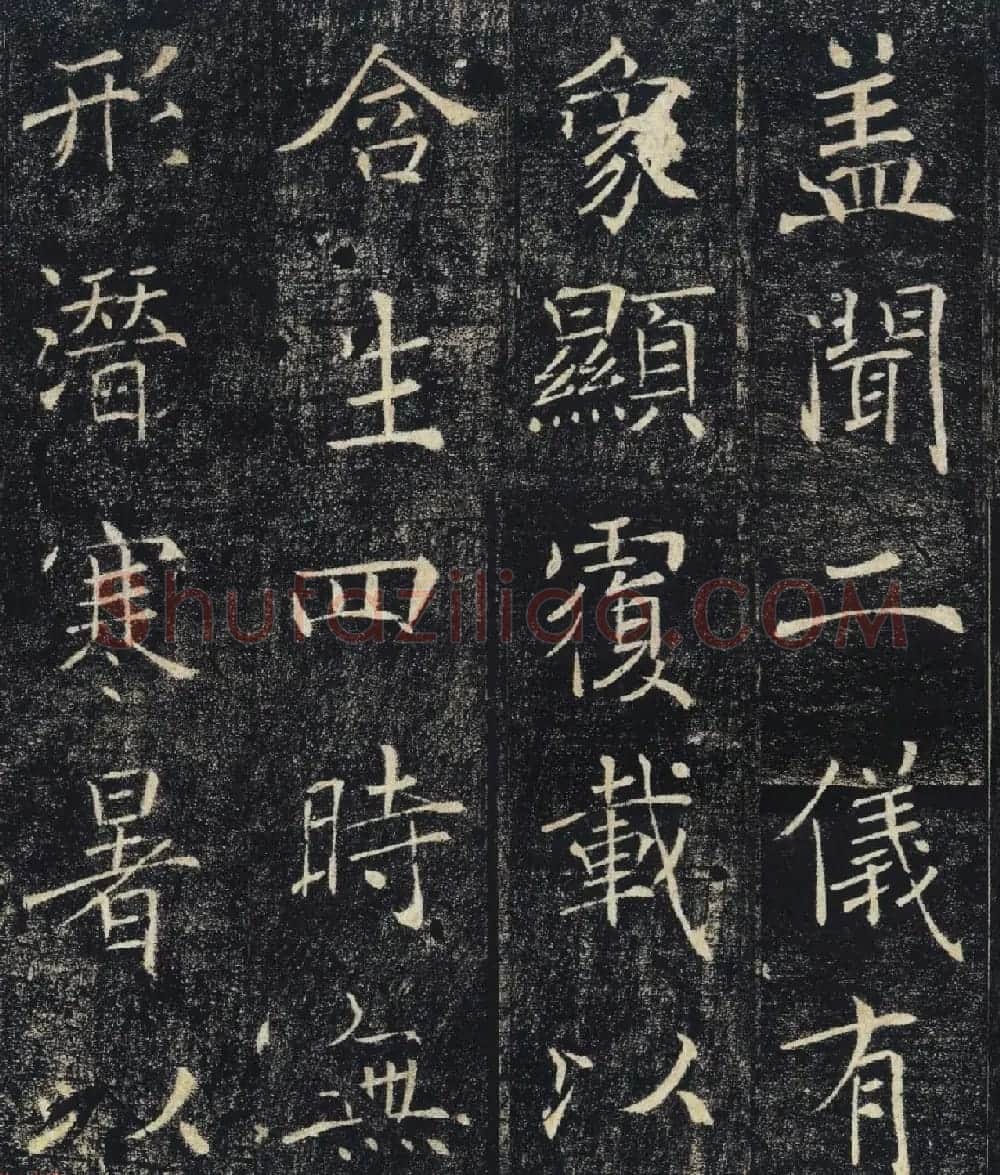 盖聞二儀有
象顯覆載以
含生四時無
形潛寒暑以
Shufaziliao.COM